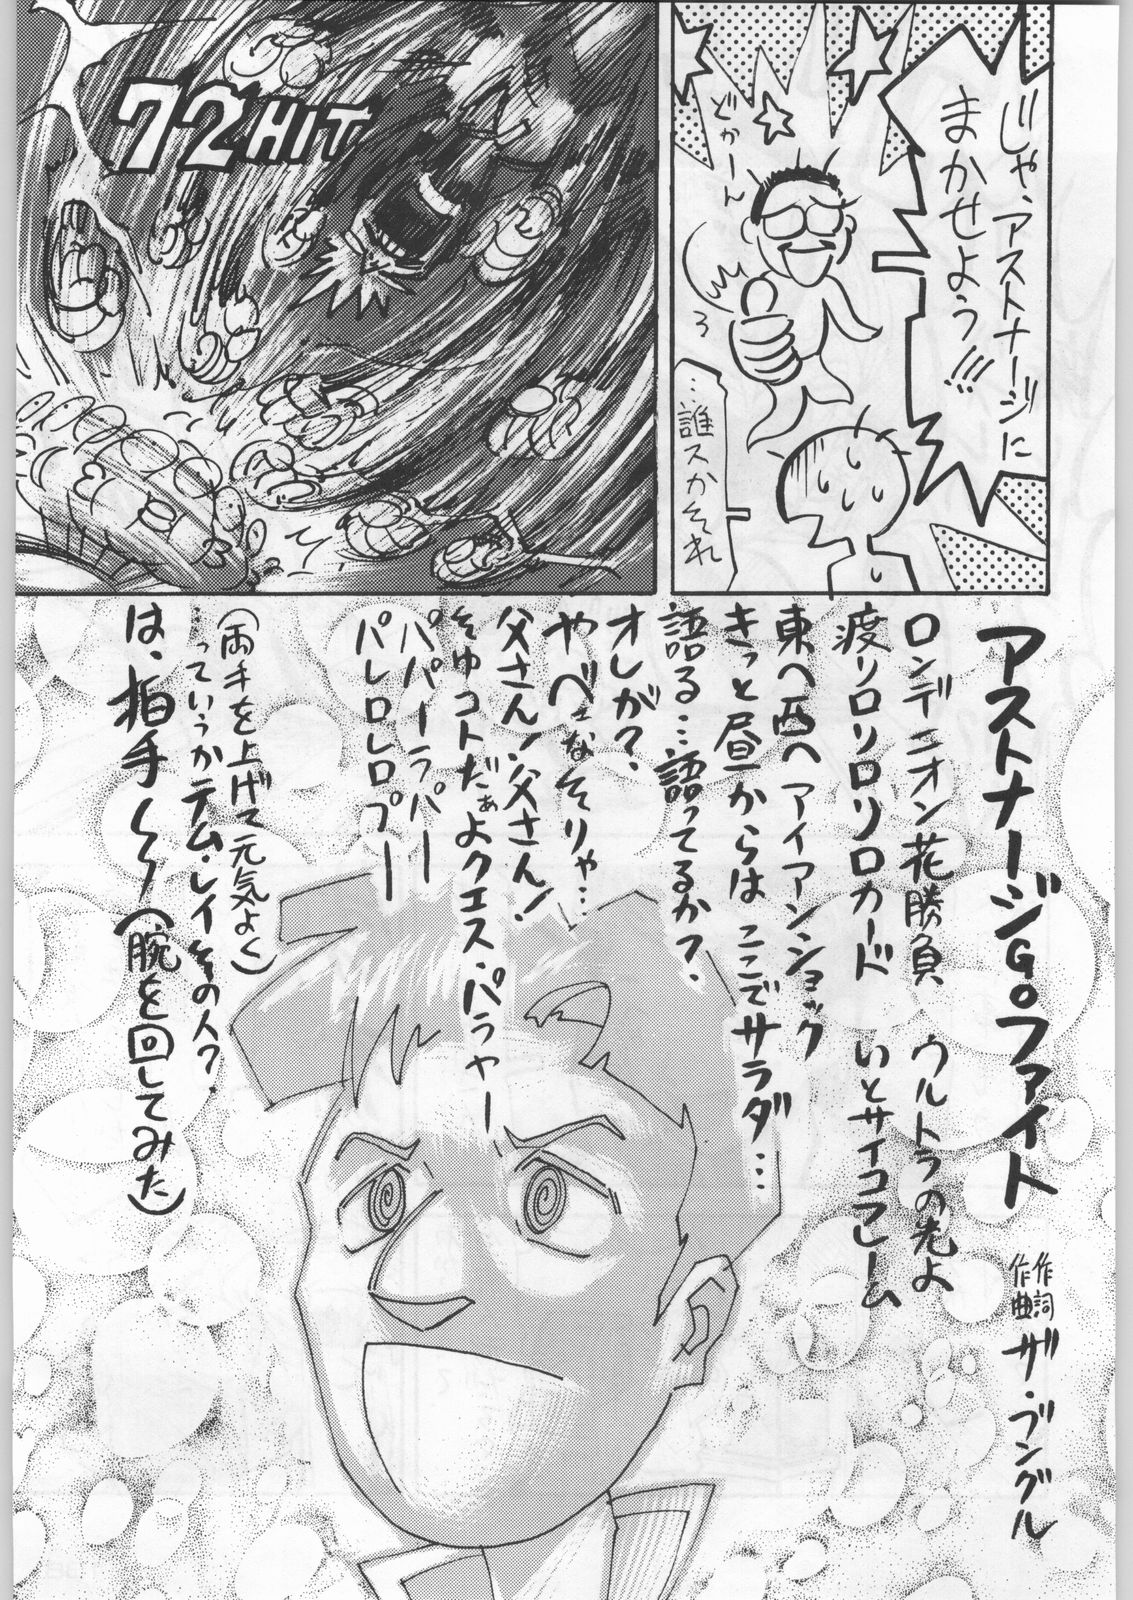 じゃ、アストナージに
まかせよう!!!
どかーん
…誰スかそれ
72HIT
アストナージG。ファイト
作詞
作曲
ザ・ブングル
ロンデニオン花勝負 ウルトラの光よ
渡リロリロリソロカード いとサイコフレーム
東へ西へアイアンショック
きっと昼からはここでサラダ…
語る…語ってるか?.
オレが?.
やべェなそりゃ…
父さん!父さん!
そゆコトだぁよクエス・パラャー
パパーラパー
パレロレロプー
(両手を上げて元気よく)
…っていうかテム・レイその人?.
は、拍手～～(腕を回してみた)